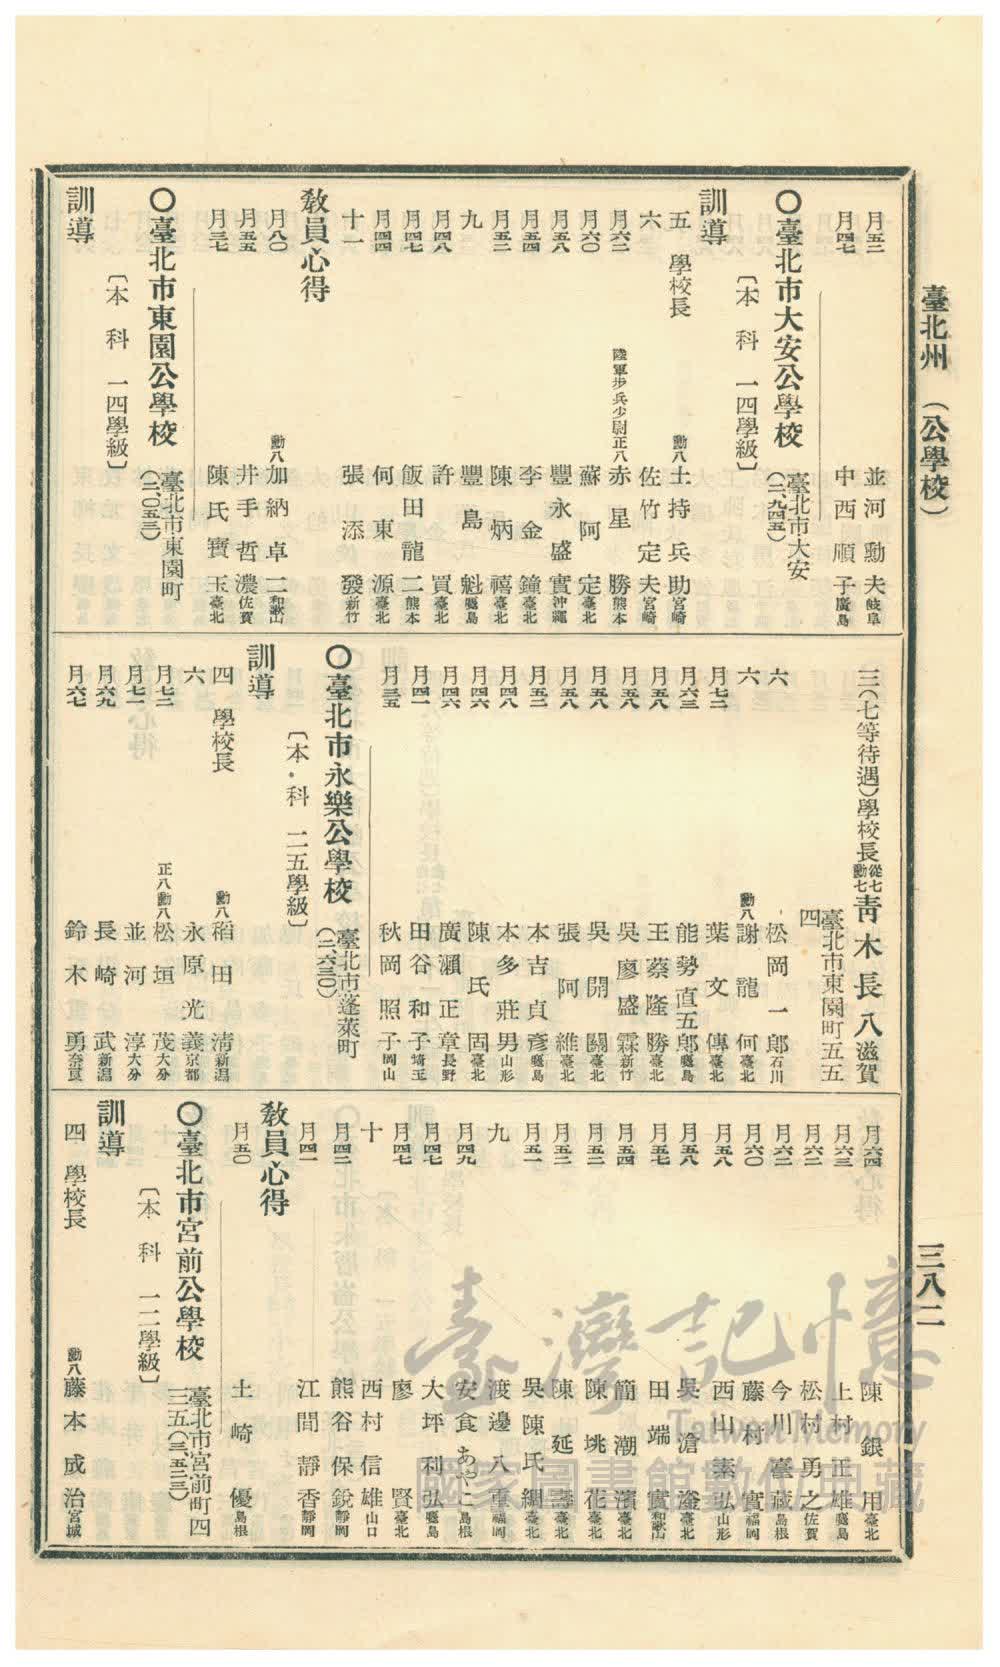 臺北州 (公學校)
三八二
月五二 並河勳夫 岐阜
月四七 中西順子 廣島
○臺北市大安公學校 臺北市大安(二、九四五)
〔本科 一四學級〕
訓導
五 學校長 勳八 土持兵助 宮崎
六 佐竹定夫 宮崎
月六二 陸軍步兵少尉正八 赤星勝 熊本
月六〇 蘇阿定 臺北
月五八 豐永盛實 沖繩
月五四 李金鐘 臺北
月五二 陳炳禧 臺北
九 豐島魁 鹿島
月四八 許買 臺北
月四七 飯田龍二 熊本
月四四 何東源 臺北
十一 張添發 新竹
教員心得
月八〇 勳八 加納卓二 和歌山
月五五 井手哲濃 佐賀
月三七 陳氏寶玉 臺北
○臺北市東園公學校 臺北市東園町(二、〇五三)
〔本科 一四學級〕
訓導
三(七等待遇)學校長 從七勳七 靑木長八 滋賀
臺北市東園町五五四
六 松岡一郎 石川
六 勳八 謝龍何 臺北
月七二 葉文傳 臺北
月六三 能勢直五郎 鹿島
月五八 王蔡隆勝 臺北
月五八 吳廖盛霖 新竹
月五八 吳開關 臺北
月五八 張阿維 臺北
月五二 本吉貞彥 鹿島
月四八 本多莊男 山形
月四六 陳氏固 臺北
月四六 廣瀨正章 長野
月四一 田谷一和子 埼玉
月三五 秋岡照子 岡山
○臺北市永樂公學校 臺北市蓬萊町(二、六三〇)
〔本科 二五學級〕
訓導
四 學校長 勳八 稻田淸 新潟
六 永原光義 京都
月七二 正八勳八 松垣茂 大分
月七一 並河淳 大分
月六九 長崎武 新潟
月六七 鈴木勇 奈良
月六四 陳銀用 臺北
月六三 上村正雄 鹿島
月六二 松村勇之 佐賀
月六二 今川臺藏 島根
月六〇 藤村實 福岡
月五八 西山素弘 山形
月五八 吳滄 臺北
月五七 田端實 和歌山
月五四 簡潮濱 臺北
月五二 陳姚花 臺北
月五二 陳延壽 臺北
月五一 吳陳氏綢 臺北
九 渡邊八重 福岡
月四九 安食あやこ 島根
月四七 大坪利弘 鹿島
月四七 廖賢 臺北
十 西村信雄 山口
月四二 熊谷保銳 靜岡
月四一 江間靜香 靜岡
教員心得
月五〇 土崎優 島根
○臺北市宮前公學校 臺北市宮前町四三五(三、五二三)
〔本科 一二學級〕
訓導
四 學校長 勳八 藤本成治 宮城
臺灣記憶
Taiwan Memory
國家圖書館數位典藏